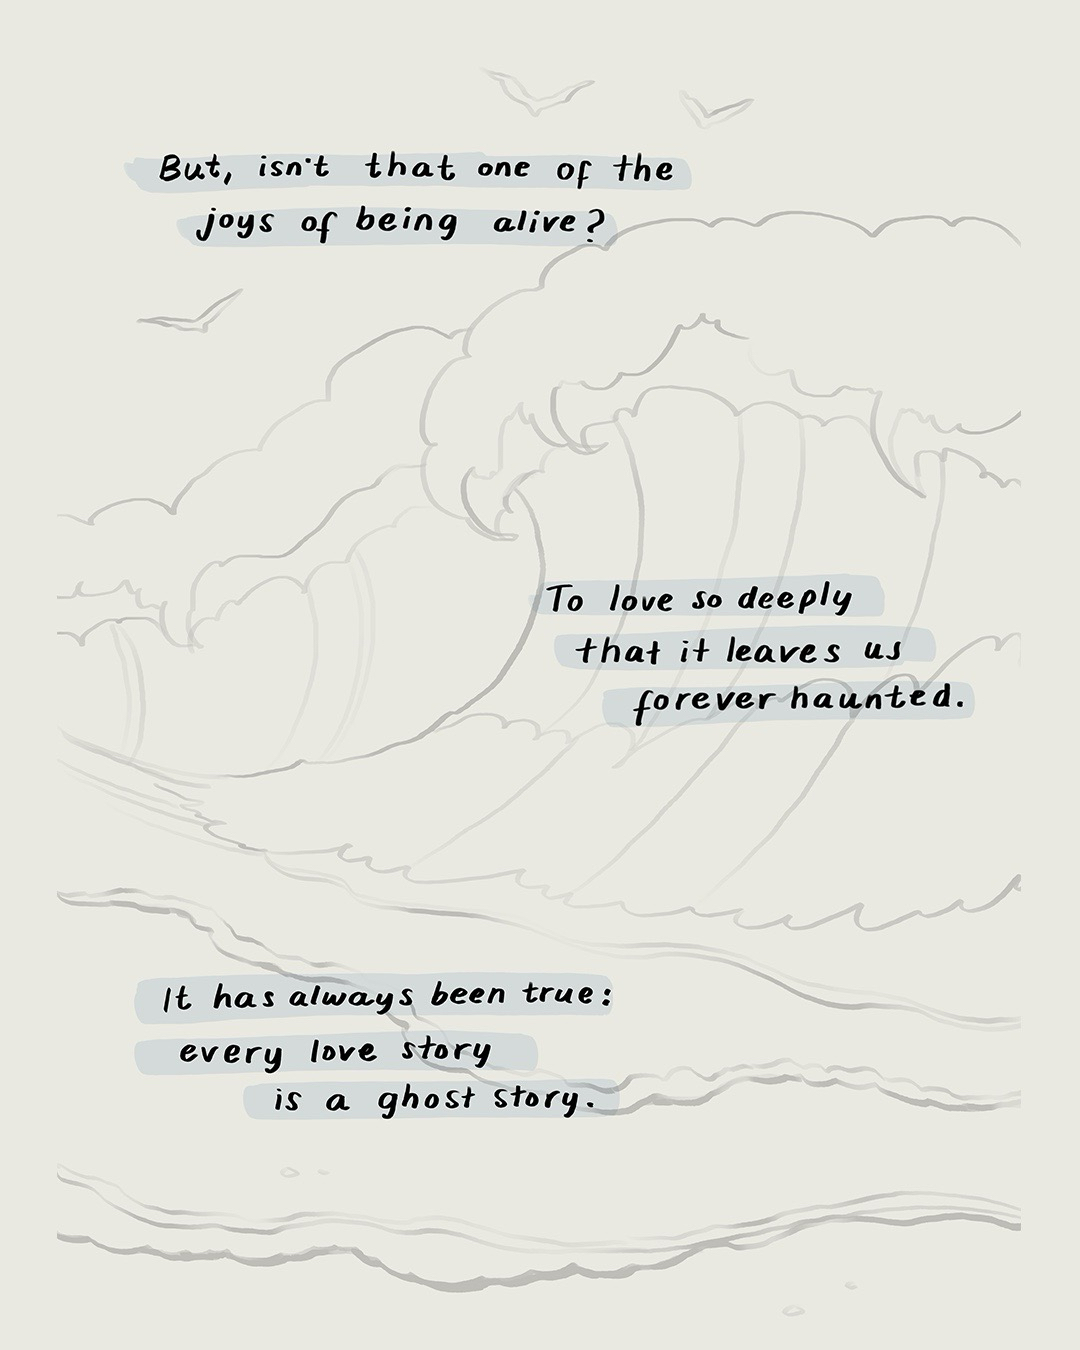 But, isn't that one of the
joys of being alive?
To love so deeply
that it leaves us
forever haunted.
It has always been true:
every love story
is a ghost story.